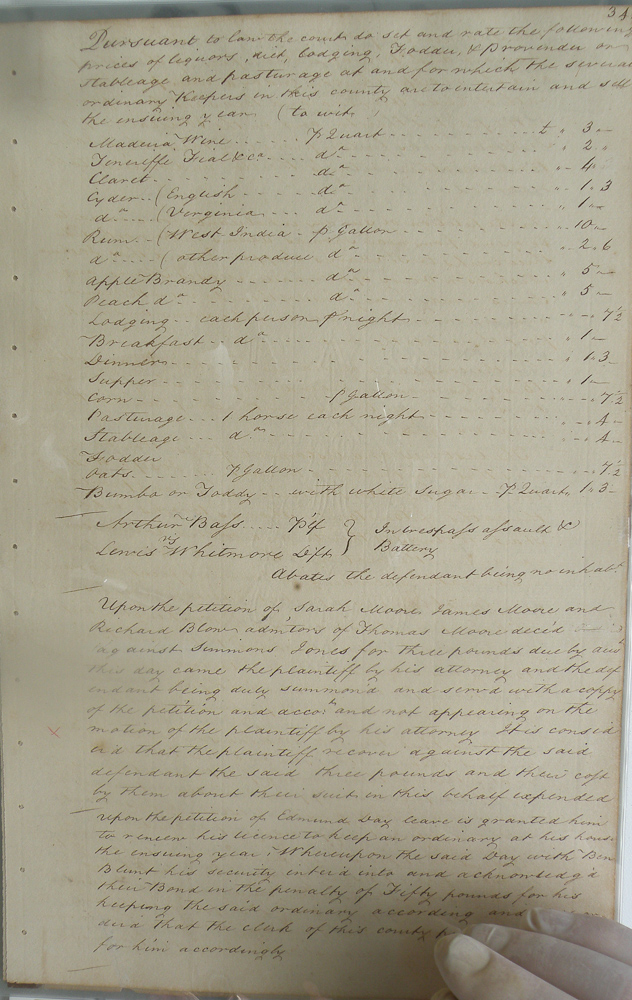 34
Pursuant to law the court do set and rate the following
prices of liquors, diet, lodging, Fodder, & Provender or
Stableage and pasturage at and for which the several
ordinary Keepers in this county are to entertain and sell
the ensuing year (to wit,
Madeira Wine - - - - ⅌ Quart - - - - - - - - - - £ " 3 -
Teneriffe Fial &ca - - - do - - - - - - - - - - " 2 "
Claret - - - - - - - do - - - - - - - - - - " 4 -
Cyder - - (English - - - - - do - - - - - - - - - - " 1 " 3
do - - - - (Virginia - - - - do - - - - - - - - - - " 1 " -
Rum - - (West India - ⅌ Gallon - - - - - - - - - - 10 -
do - - - - (other produce do - - - - - - - - - - " 2 " 6
Apple Brandy - - - - - - do - - - - - - - - - - " 5 -
Peach do - - - - - - - do - - - - - - - - - - " 5 -
Lodging - - each person ⅌ night - - - - - - - - - - 7½
Breakfast - - do - - - - - - - - - - " 1 -
Dinner - - - - - - - - - - " 1 " 3
Supper - - - - - - - - - - " 1 -
Corn - - - - - - ⅌ Gallon - - - - - - - - - - 7½
Pasturage - - - 1 horse each night - - - - - - - - - - " 4 -
Stableage - - - do - - - - - - - - - - " 4 -
Fodder
Oats - - - - ⅌ gallon - - - - - - - - - - 7½
Bumbo or Toddy - - with white Sugar - ⅌ Quart " 1 " 3 -
Arthur Bass - - - - Plf } In trespass assault &
vs
Lewis Whitmore Dft } Battery
Abates the defendant being no inhabt
Upon the petition of Sarah Moore James Moore and
Richard Blow admtors of Thomas Moore decd
against Simmons Jones for three pounds due by
this day came the plaintiff by his attorney and the def
endant being duly summon'd and serv'd with a coppy
of the petition and accot and not appearing on the
motion of the plaintiff by his attorney It is consid
er'd that the plaintiff recover against the said
defendant the said three pounds and their cost
by them about their suit in this behalf expended
Upon the petition of Edmund Day leave is granted him
to renew his licence to keep an ordinary at his house
the ensuing year, Whereupon the said Day with Ben
Blunt his security enter'd into and acknowledg'd
their Bond in the penalty of Fifty pounds for his
keeping the said ordinary according and
derd that the clerk of this county
for him accordingly